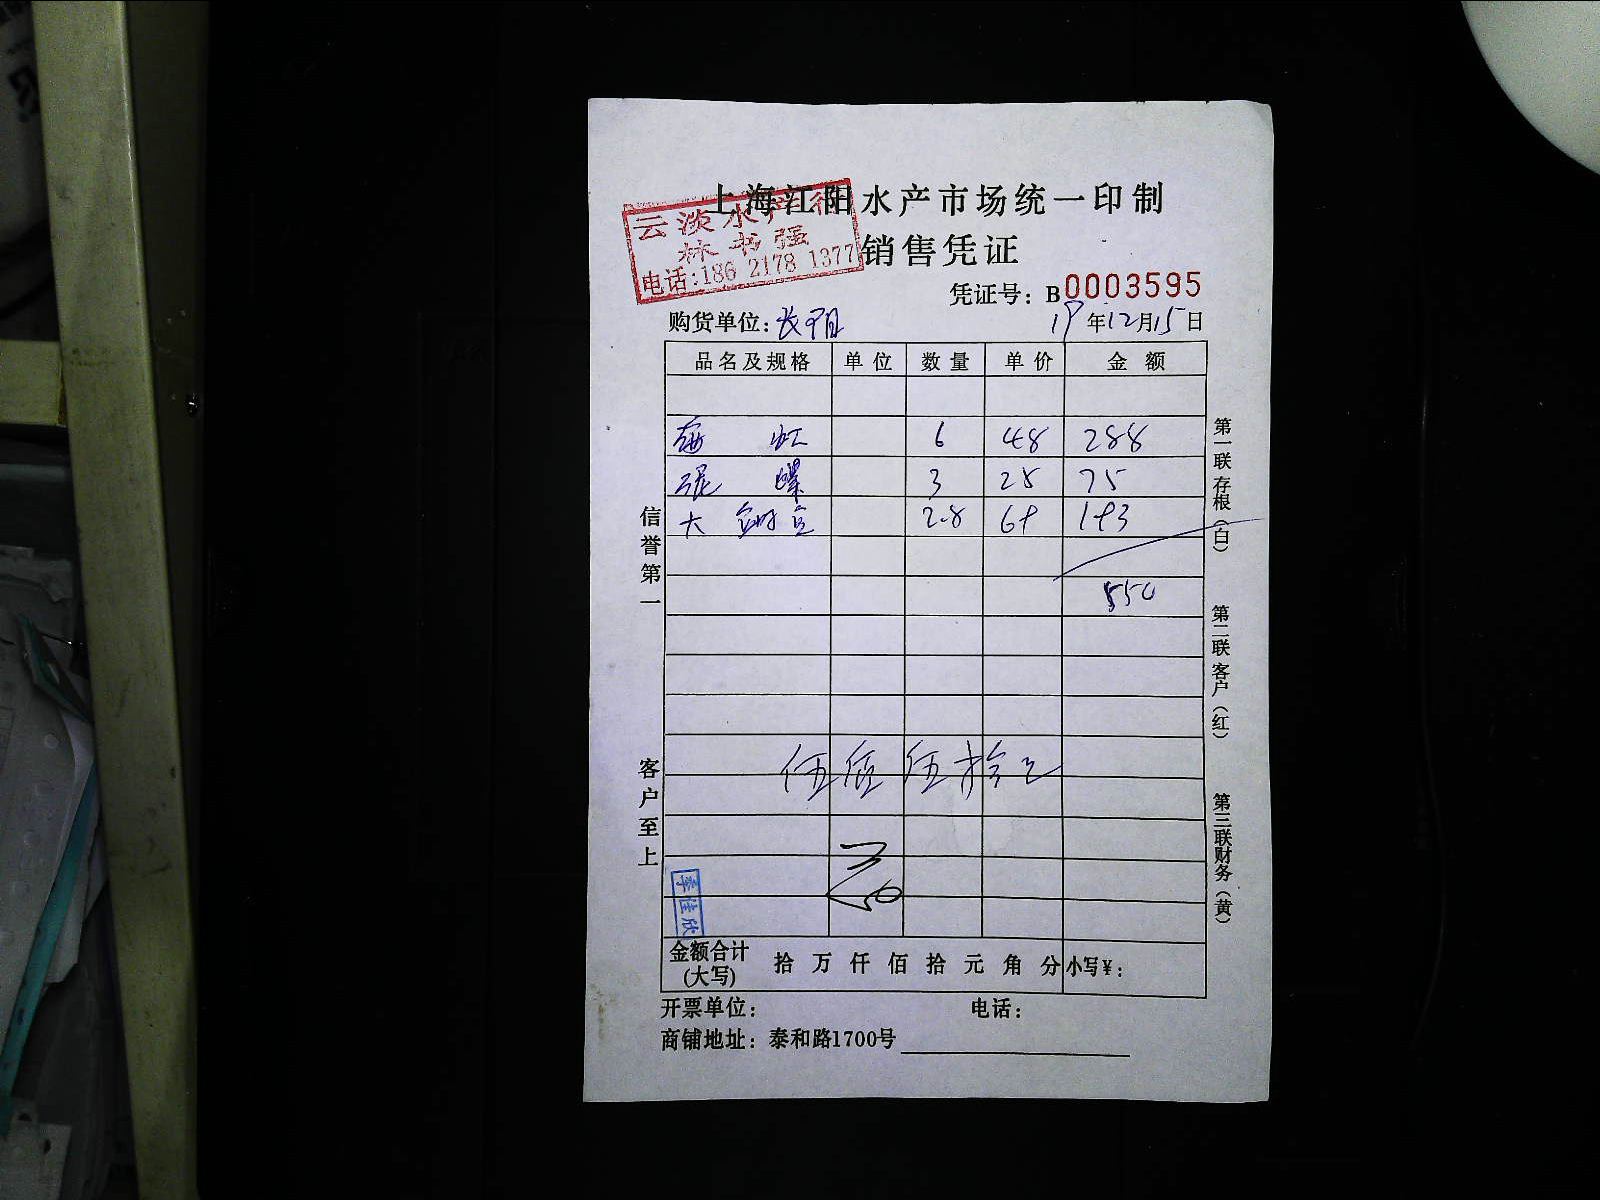 上海江阳水产市场统一印制
云淡水产行
林书强
电话:186 2178 1377
销售凭证
凭证号：B0003595
购货单位：长阳 19年12月15日
品名及规格 单位 数量 单价 金额
海虹 6 48 288
泥螺 3 25 75
大 2.8 69 193
550
伍佰伍拾元
信誉第一
客户至上
第一联存根（白）
第二联客户（红）
第三联财务（黄）
季佳欣
金额合计(大写) 拾 万 仟 佰 拾 元 角 分 小写¥：
开票单位： 电话：
商铺地址：泰和路1700号